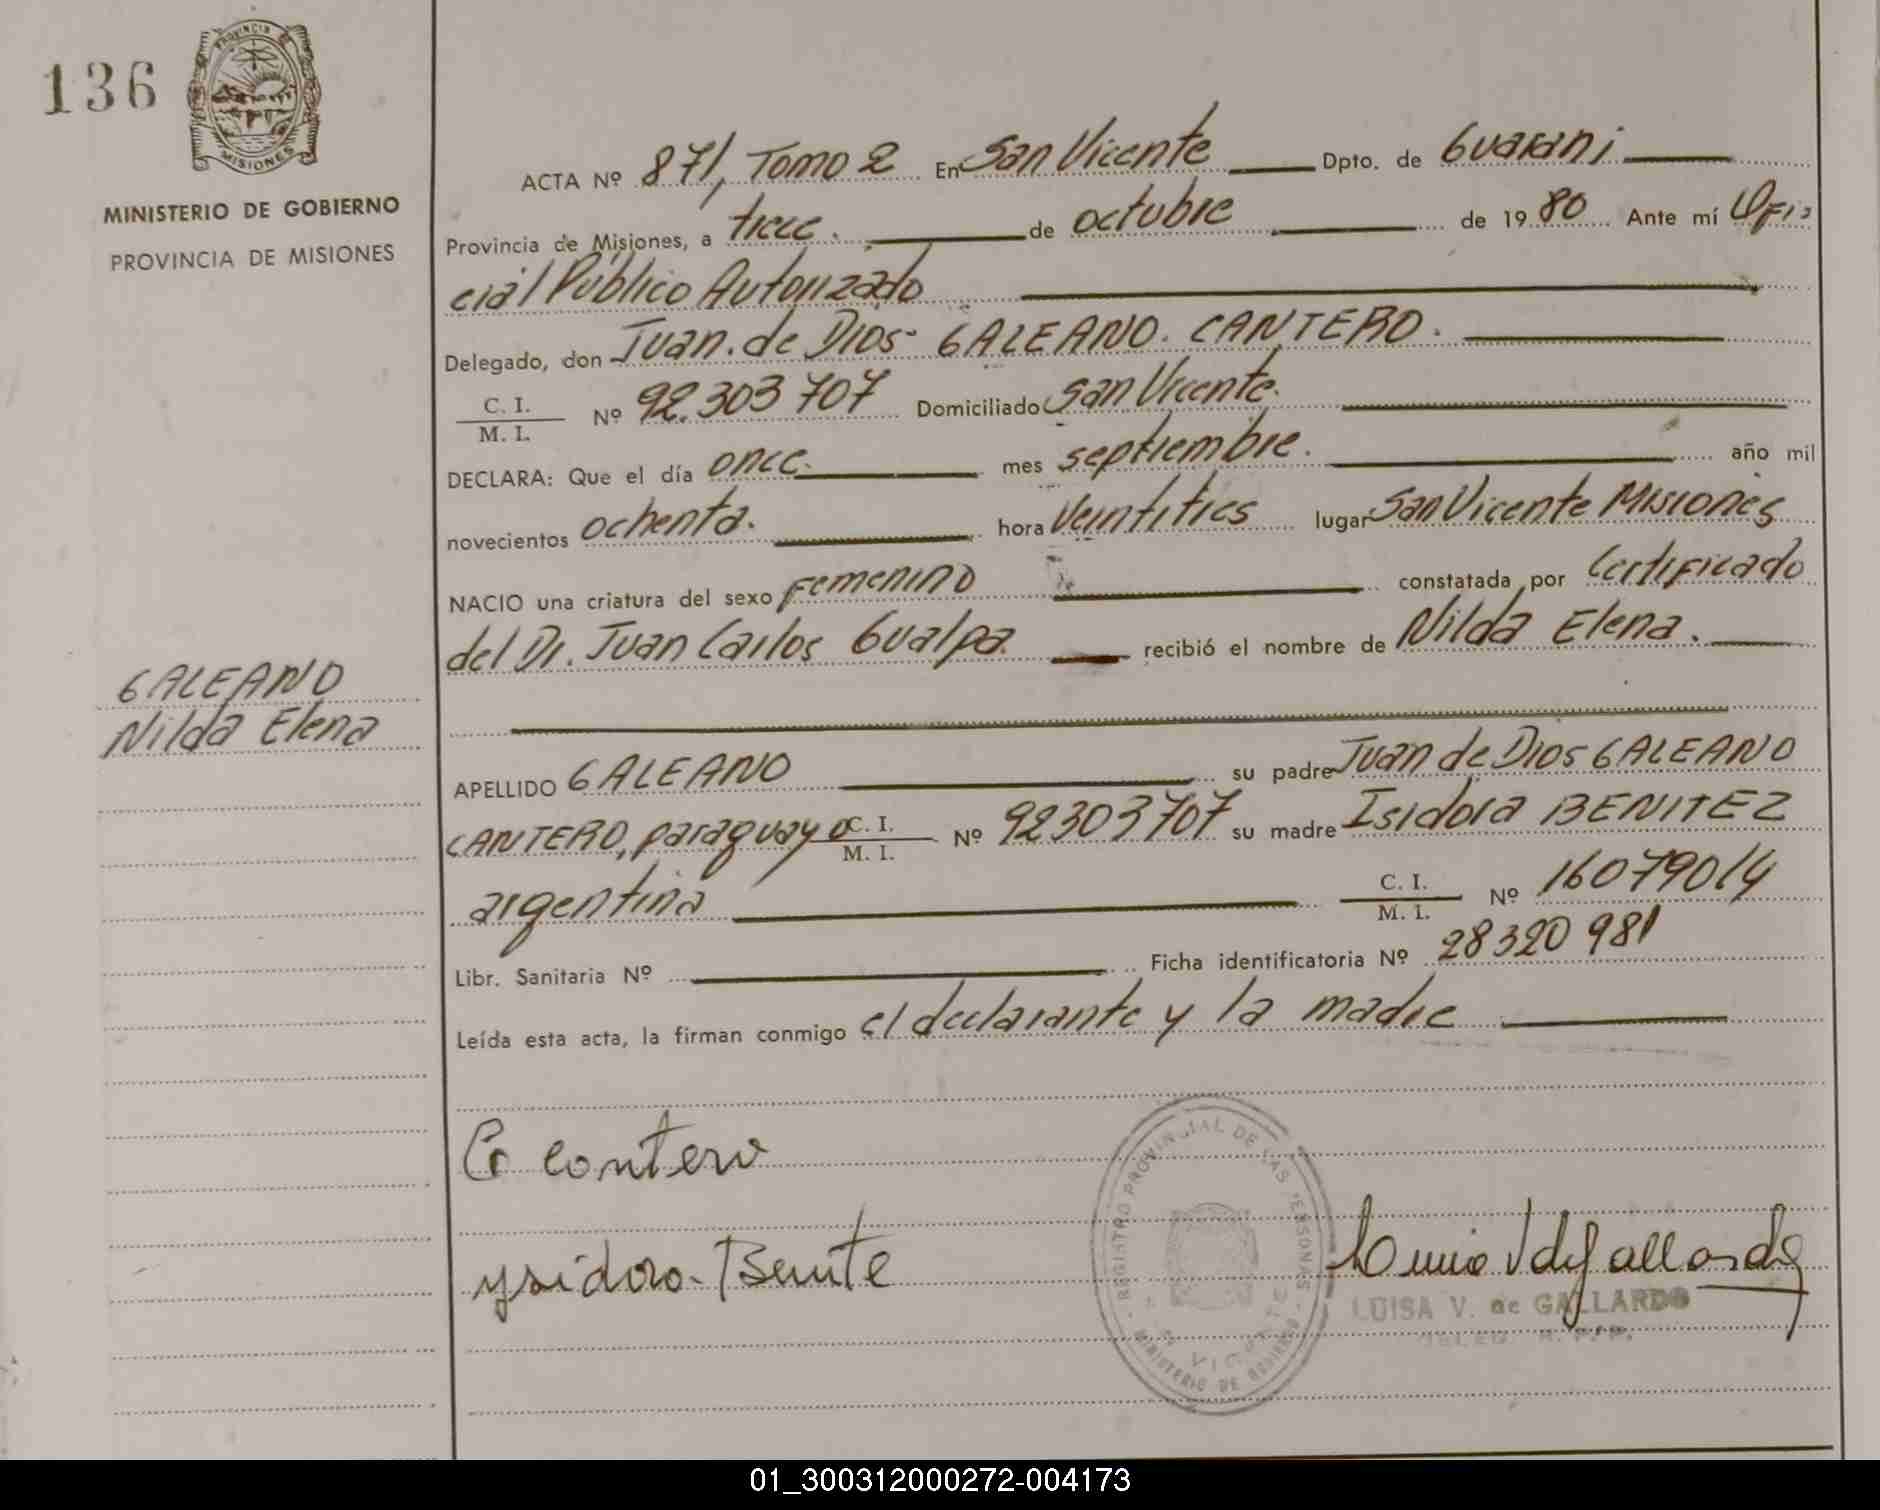 136
PROVINCIA DE
MISIONES
MINISTERIO DE GOBIERNO
PROVINCIA DE MISIONES
GALEANO
Nilda Elena
ACTA Nº 871, Tomo 2 En San Vicente Dpto. de Guarani
Provincia de Misiones, a trece. de octubre de 1980 Ante mí Ofi
cial Público Autorizado
Delegado, don Juan de Dios GALEANO CANTERO.
C. I. / M. I. Nº 92.303707 Domiciliado San Vicente.
DECLARA: Que el día once. mes septiembre. año mil
novecientos ochenta. hora veintitres lugar San Vicente Misiones
NACIO una criatura del sexo Femenino constatada por Certificado
del Dr. Juan Carlos Gualpa. recibió el nombre de Nilda Elena.
APELLIDO GALEANO su padre Juan de Dios GALEANO
CANTERO, paraguayo C. I. / M. I. Nº 92303707 su madre Isidora BENITEZ
argentina C. I. / M. I. Nº 16079014
Libr. Sanitaria Nº Ficha identificatoria Nº 28320981
Leída esta acta, la firman conmigo el declarante y la madre
G cantero
ysidora Benite
REGISTRO PROVINCIAL DE LAS PERSONAS
MINISTERIO DE GOBIERNO
LUISA V. de GALLARDO
01_300312000272-004173